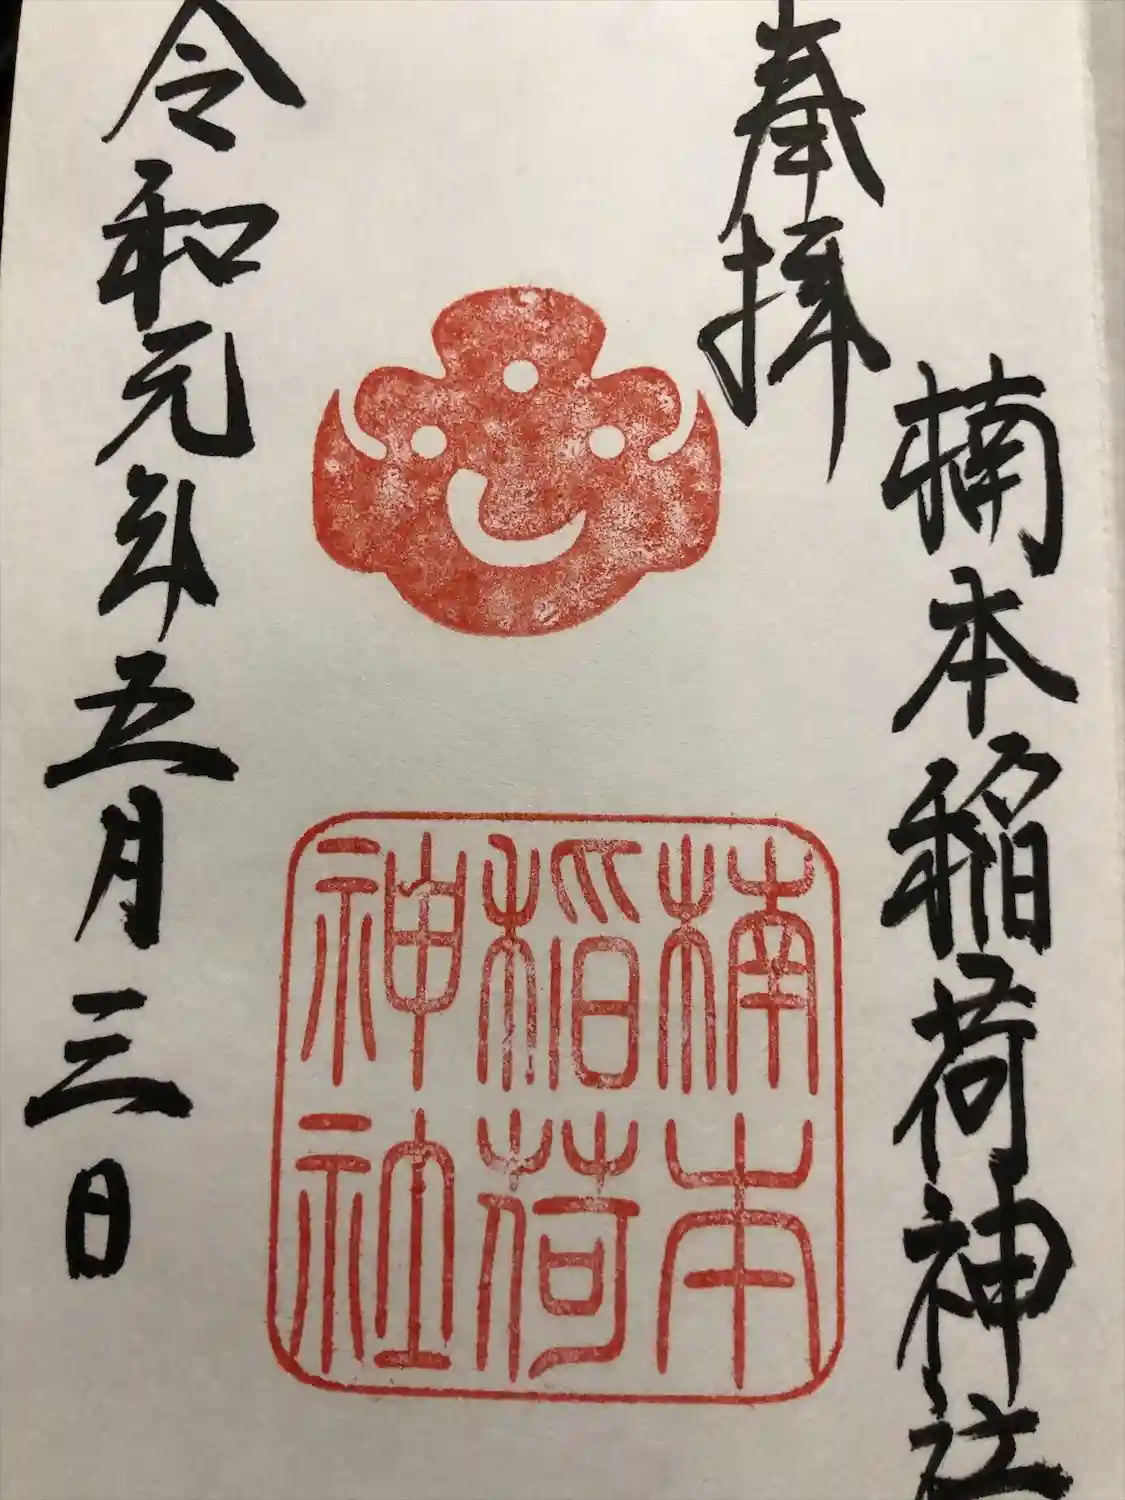 奉拝
楠本稲荷神社
楠本
稲荷
神社
令和元年五月三日